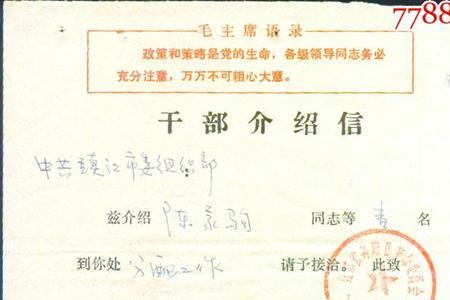 7788
毛主席语录
政策和策略是党的生命，各级领导同志务必
充分注意，万万不可粗心大意。
干部介绍信
中共镇江市委组织部
兹介绍 陈 同志等 壹 名
到你处 分配工作 请予接洽。此致